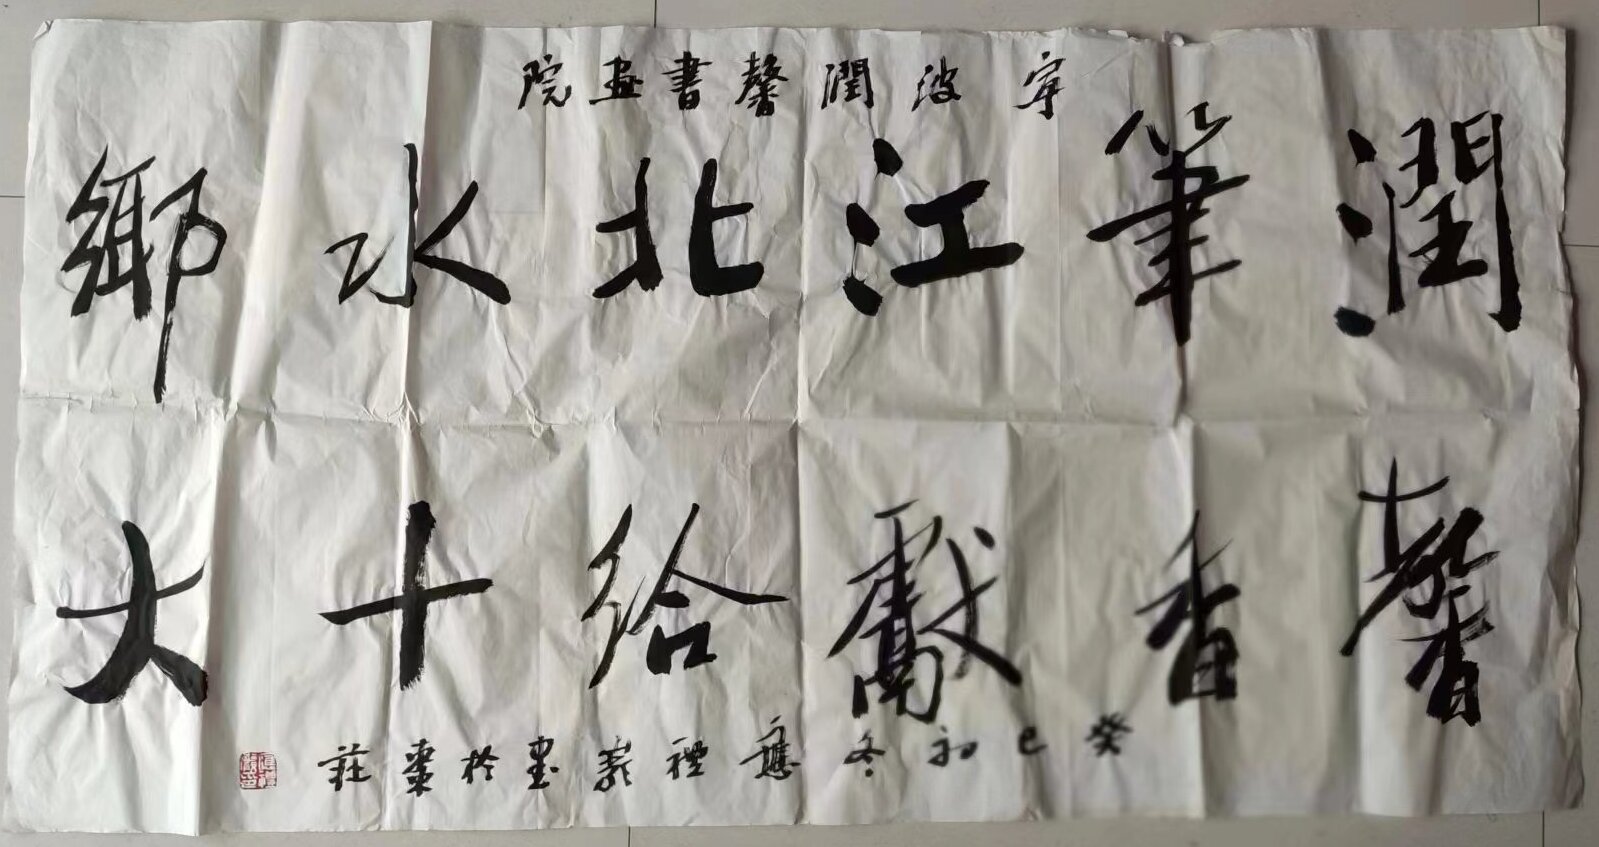 寍波潤馨書画院
潤筆江北水鄉
馨香獻給十大
癸巳初冬應禮義書於棗莊